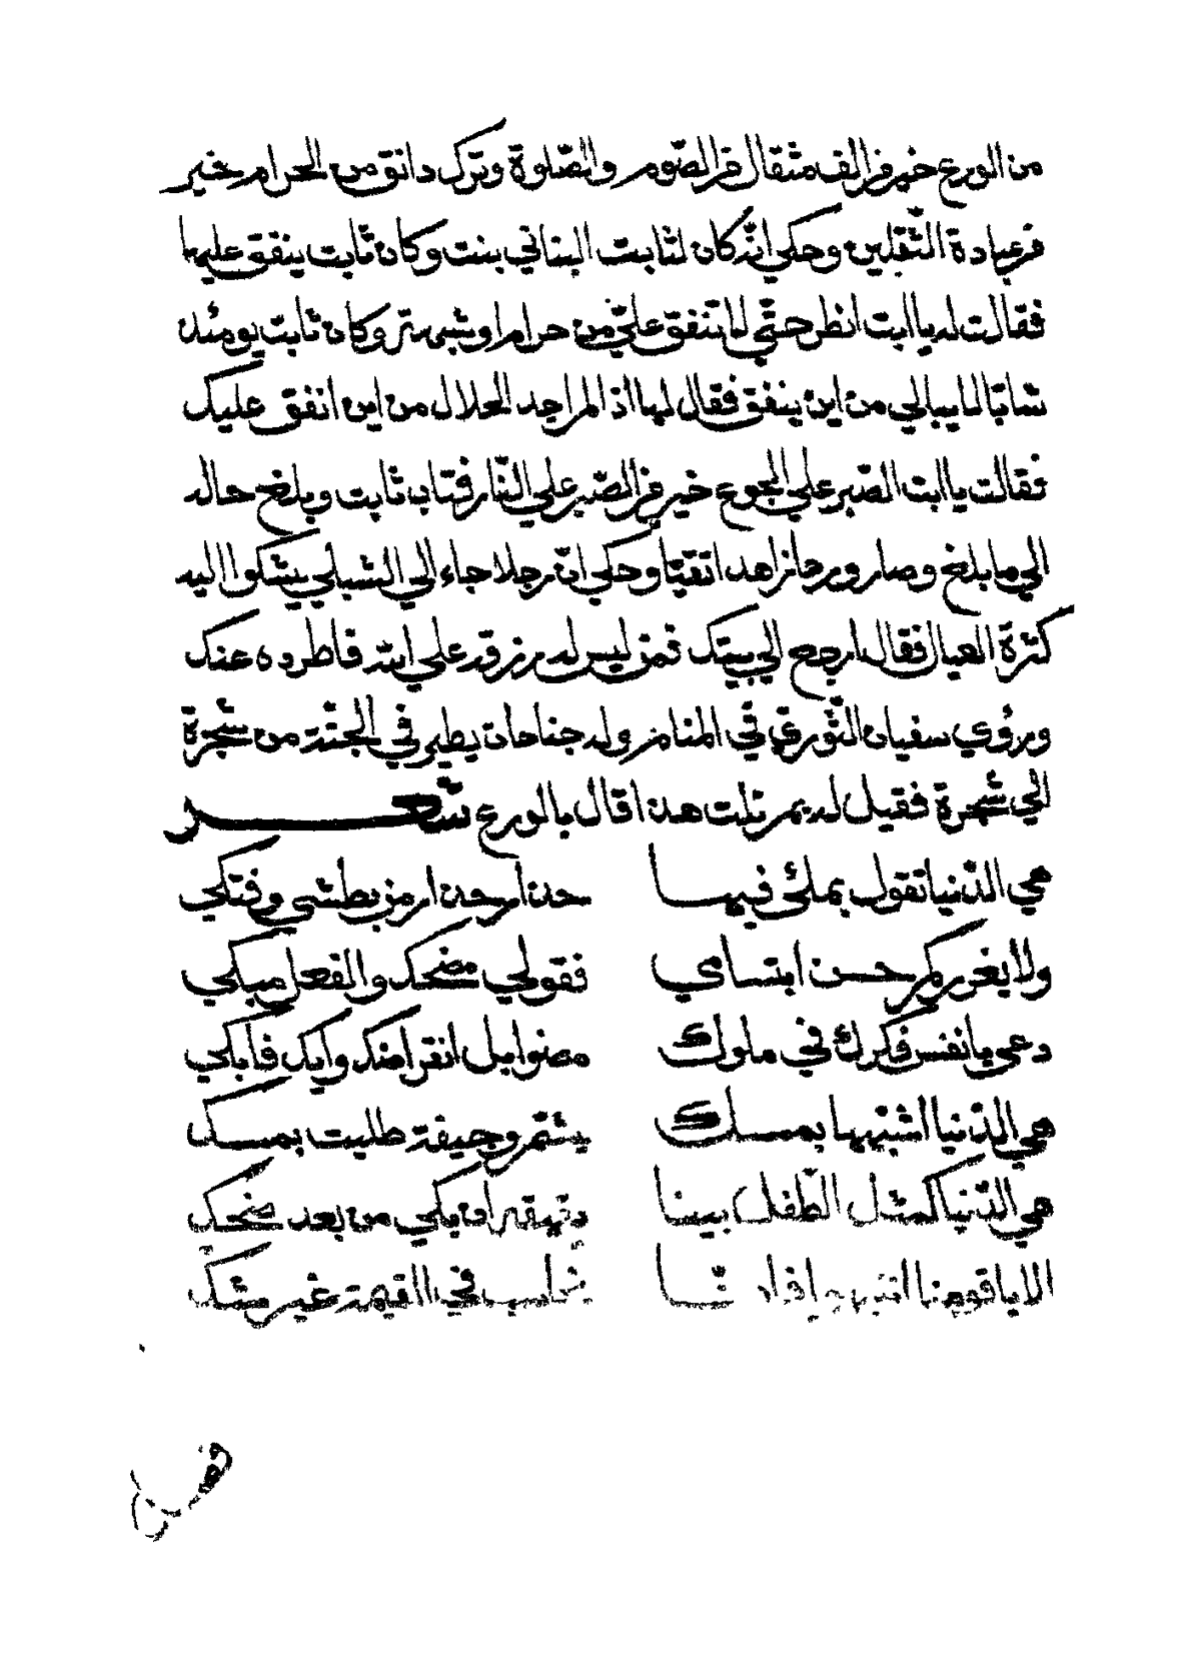 من الورع خير من الف مثقال من الصّوم والصّلوة وترك دانق من الحرام خير
من عبادة الثّقلين وحكي انّه كان لثابت البناني بنت وكان ثابت ينفق عليها
فقالت له يا ابت انظر حتّي لا تنفق عليّ من حرام او شبهة وكان ثابت يومئذ
شابّا لا يبالي من اين ينفق فقال لها اذا لم اجد الحلال من اين انفق عليك
فقالت يا ابت الصّبر علي الجوع خير من الصّبر علي النّار فتاب ثابت وبلغ حاله
الي ما بلغ وصار ورعا زاهدا تقيّا وحكي انّ رجلا جاء الي الشبلي يشكوا اليه
كثرة العيال فقال ارجع الي بيتك فمن ليس له رزقه علي الله فاطرده عنك
ورؤي سفيان الثّوري في المنام وله جناحان يطير في الجنّة من شجرة
الي شجرة فقيل له بم نلت هذا قال بالورع شعر
هي الدّنيا تقول بملئ فيها حذار حذار من بطشي وفتكي
ولا يغرركم حسن ابتسامي فقولي مضحك والفعل مبكي
دعي يا نفس فكرك في ملوك مضوا بل انقراضك وايك فابكي
هي الدّنيا اشبّهها بمسك يشمّ وجيفة طليت بمسك
هي الدّنيا كمثل الطّفل بينا يقهقه ان بكي من بعد ضحك
الا يا قومنا انتبهوا فانّا نحاسب في القيمة غير شك